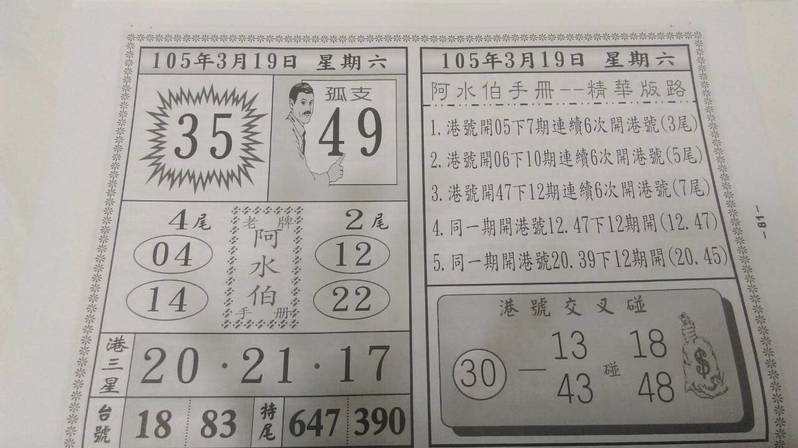 105年3月19日 星期六
35
孤支
49
4尾 2尾
04 12
14 22
老牌
阿水伯
手册
港三星
20·21·17
台號 18 83 特尾 647 390
105年3月19日 星期六
阿水伯手冊--精華版路
1.港號開05下7期連續6次開港號(3尾)
2.港號開06下10期連續6次開港號(5尾)
3.港號開47下12期連續6次開港號(7尾)
4.同一期開港號12.47下12期開(12.47)
5.同一期開港號20.39下12期開(20.45)
港號交叉碰
13 18
30 — 碰
43 48
$
-81-